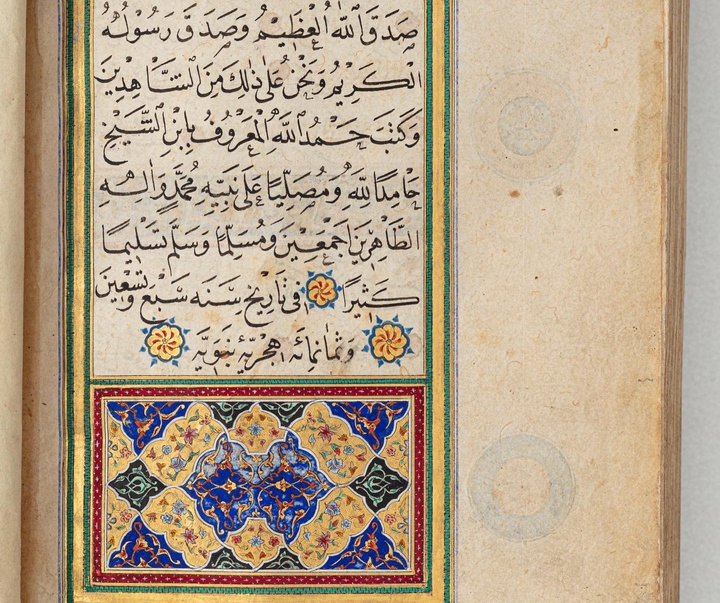 صَدَقَ اللّٰهُ الْعَظِيمُ وَصَدَقَ رَسُولُهُ
الْكَرِيمُ وَنَحْنُ عَلٰى ذٰلِكَ مِنَ الشَّاهِدِينَ
وَكَتَبَ حَمْدُ اللّٰهِ الْمَعْرُوفُ بِابْنِ الشَّيْخِ
حَامِدًا لِلّٰهِ وَمُصَلِّيًا عَلٰى نَبِيِّهِ مُحَمَّدٍ وَاٰلِهِ
الطَّاهِرِينَ اَجْمَعِينَ وَمُسَلِّمًا وَسَلَّمَ تَسْلِيمًا
كَثِيرًا فِى تَارِيخِ سَنَه سَبْعَ وَتِسْعِينَ
وَثَمَانِمِائَه هِجْرِيَّه نَبَوِيَّه